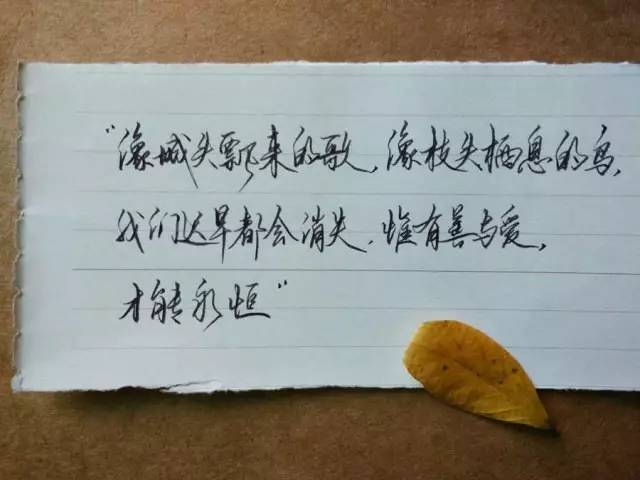 "像城头飘来的歌,像枝头栖息的鸟,
我们迟早都会消失,惟有善与爱,
才能永恒"